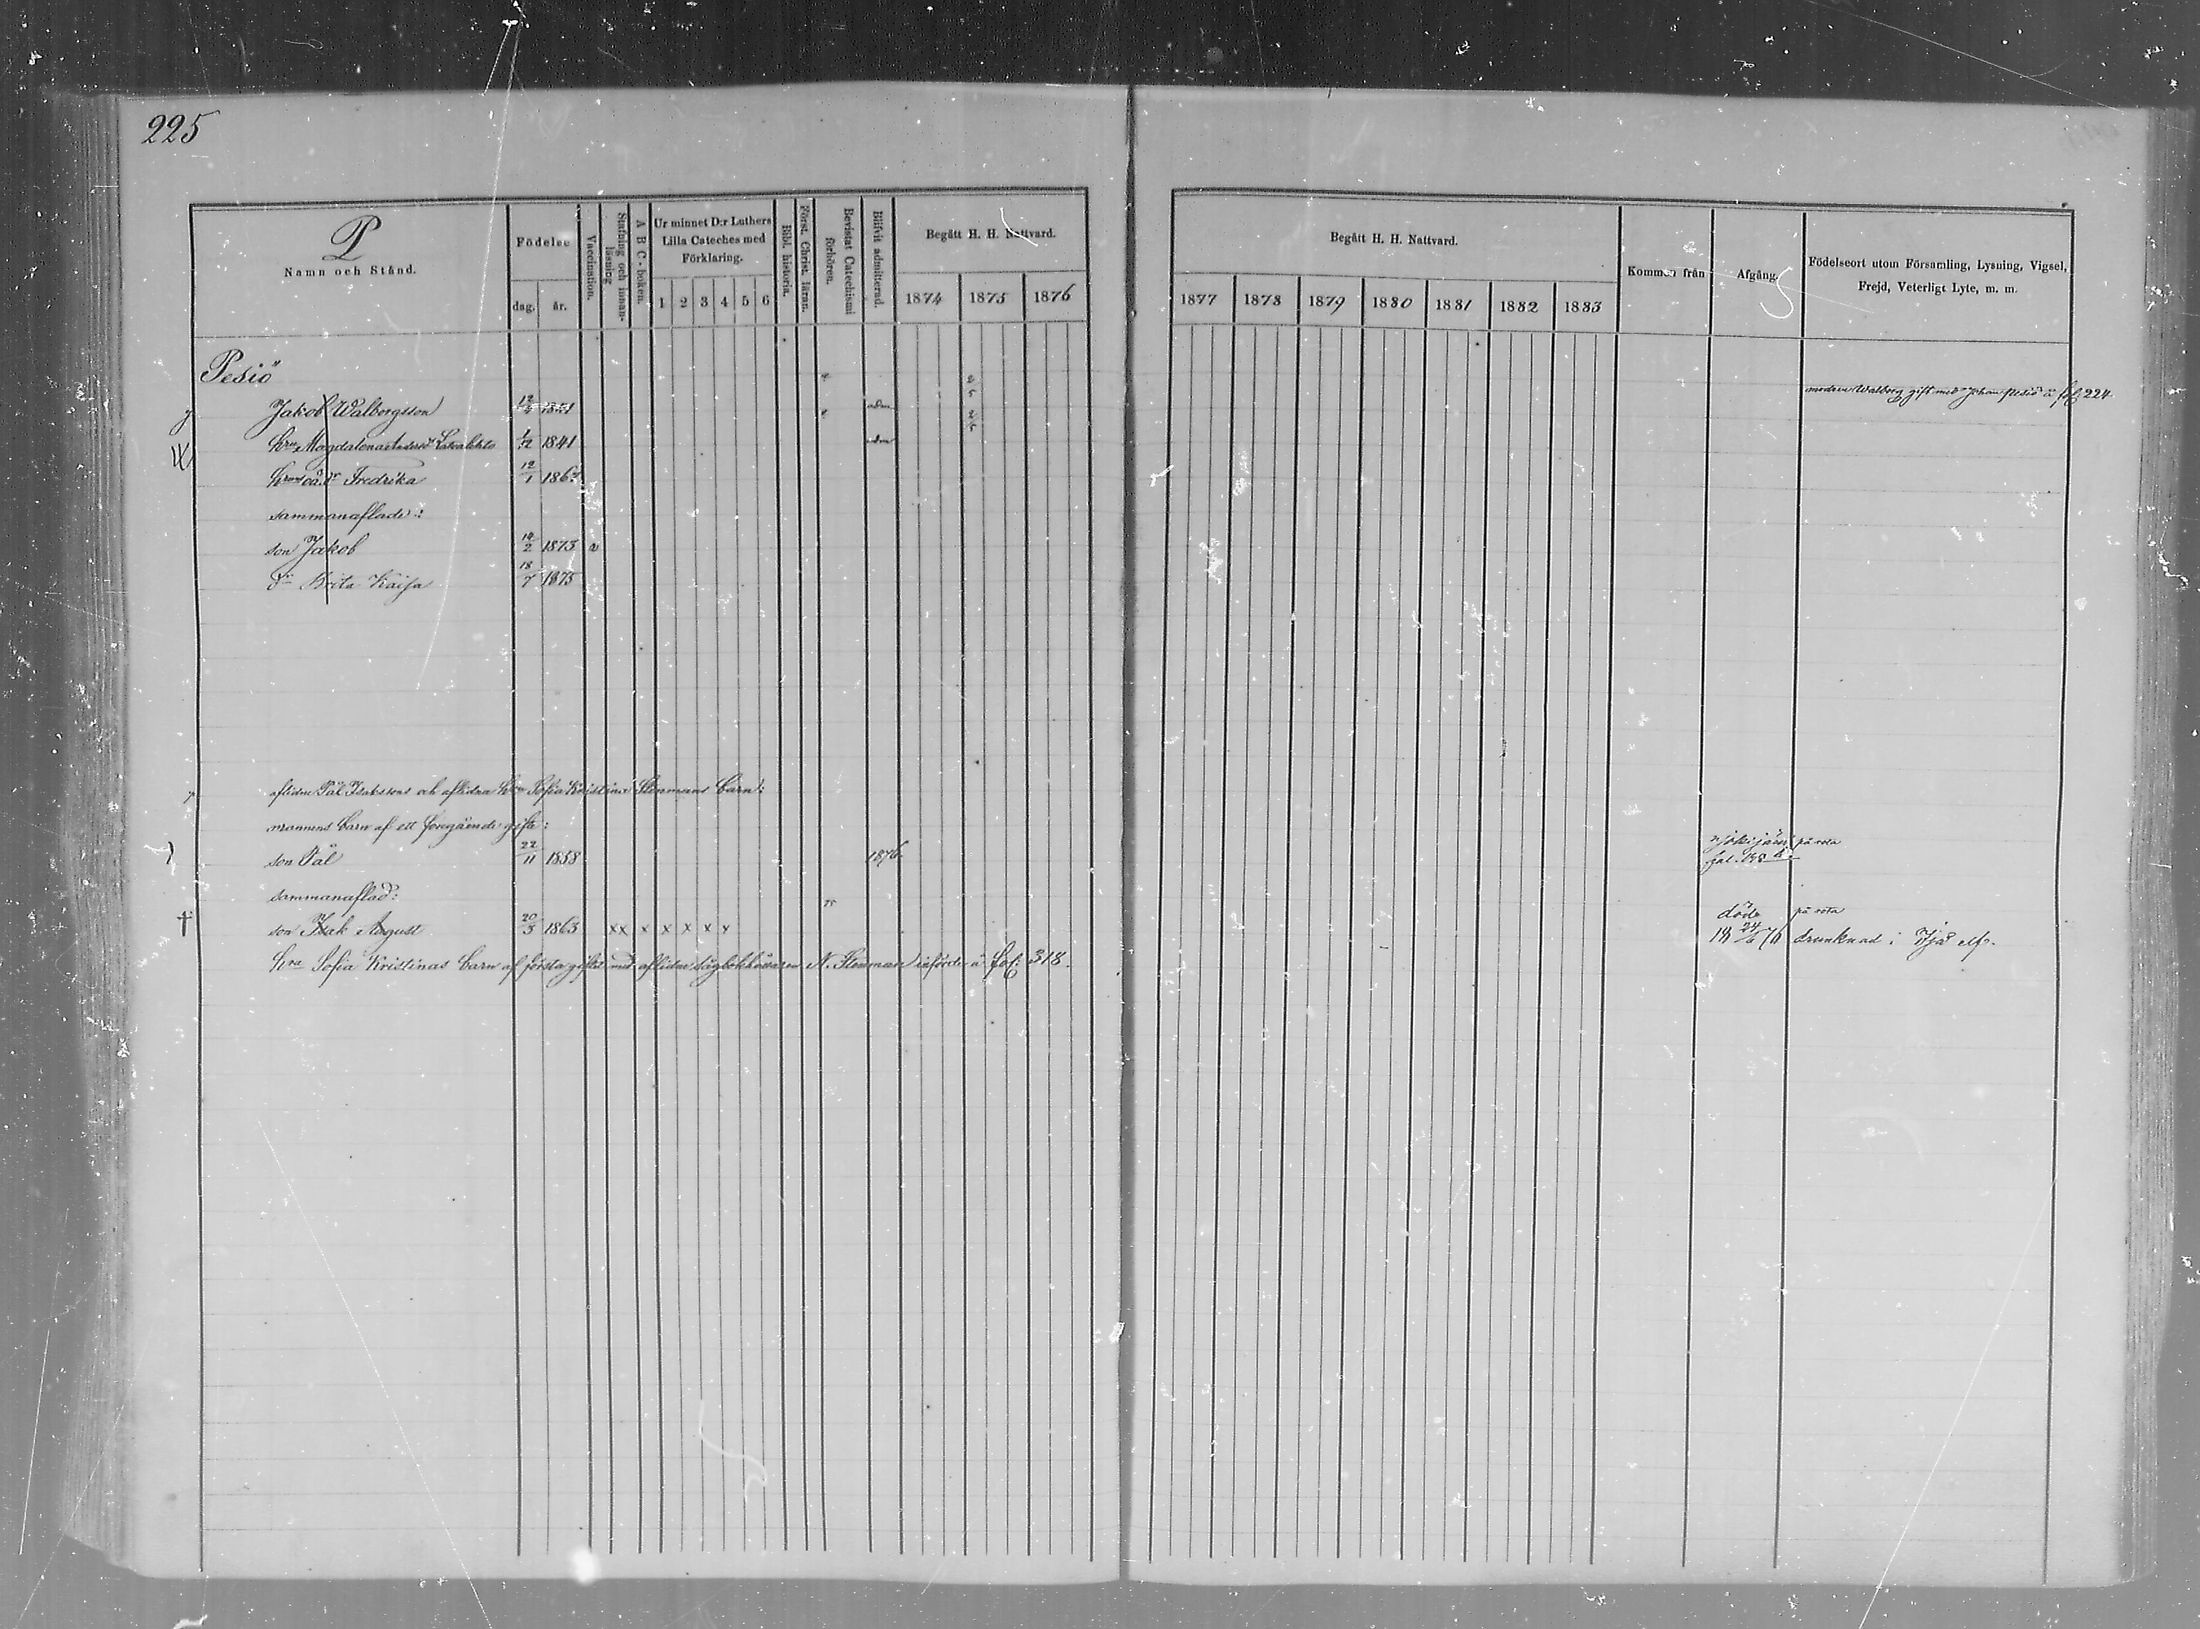 225
P
Namn och Stånd.
Födelse
dag.
år.
Vaccination.
Stafning och Innan-
läsning
A B C-boken.
Ur minnet D:r Luthers
Lilla Cateches med
Förklaring.
1 2 3 4 5 6
Bibl. historia.
Först. Christ. läran.
Bevistat Catechismi
förhören.
Blifvit admitterad.
Begått H. H. Nattvard.
1874 1875 1876
Begått H. H. Nattvard.
1877 1878 1879 1880 1881 1882 1883
Kommen från
Afgång.
Födelseort utom Församling, Lysning, Vigsel,
Frejd, Veterligt Lyte, m. m.
Pesiö
Jakob Walborgsson 12/4 1851 adm modren Walborg gift med Johan Pesiö å fol. 224
hru Magdalena 1/12 1841 adm
oä. dr Fredrika 12/1
sammanaflade:
son Jakob 14/2 1873 v
dr Brita Kaisa 18/7 1875
aflidne Pål Isakssons och aflidna hru Sofia Kristina Stenmans barn:
mannens barn af ett föregående gifte:
son Pål 22/11 1858 1876 på rota
sammanaflad:
son Isak August 20/3 1863 x x x x x x x död 24/6 på rota drunknad i Ijo elf.
hru Sofia Kristinas barn af första giftet med aflidne N. Stenman införda å fol: 318.